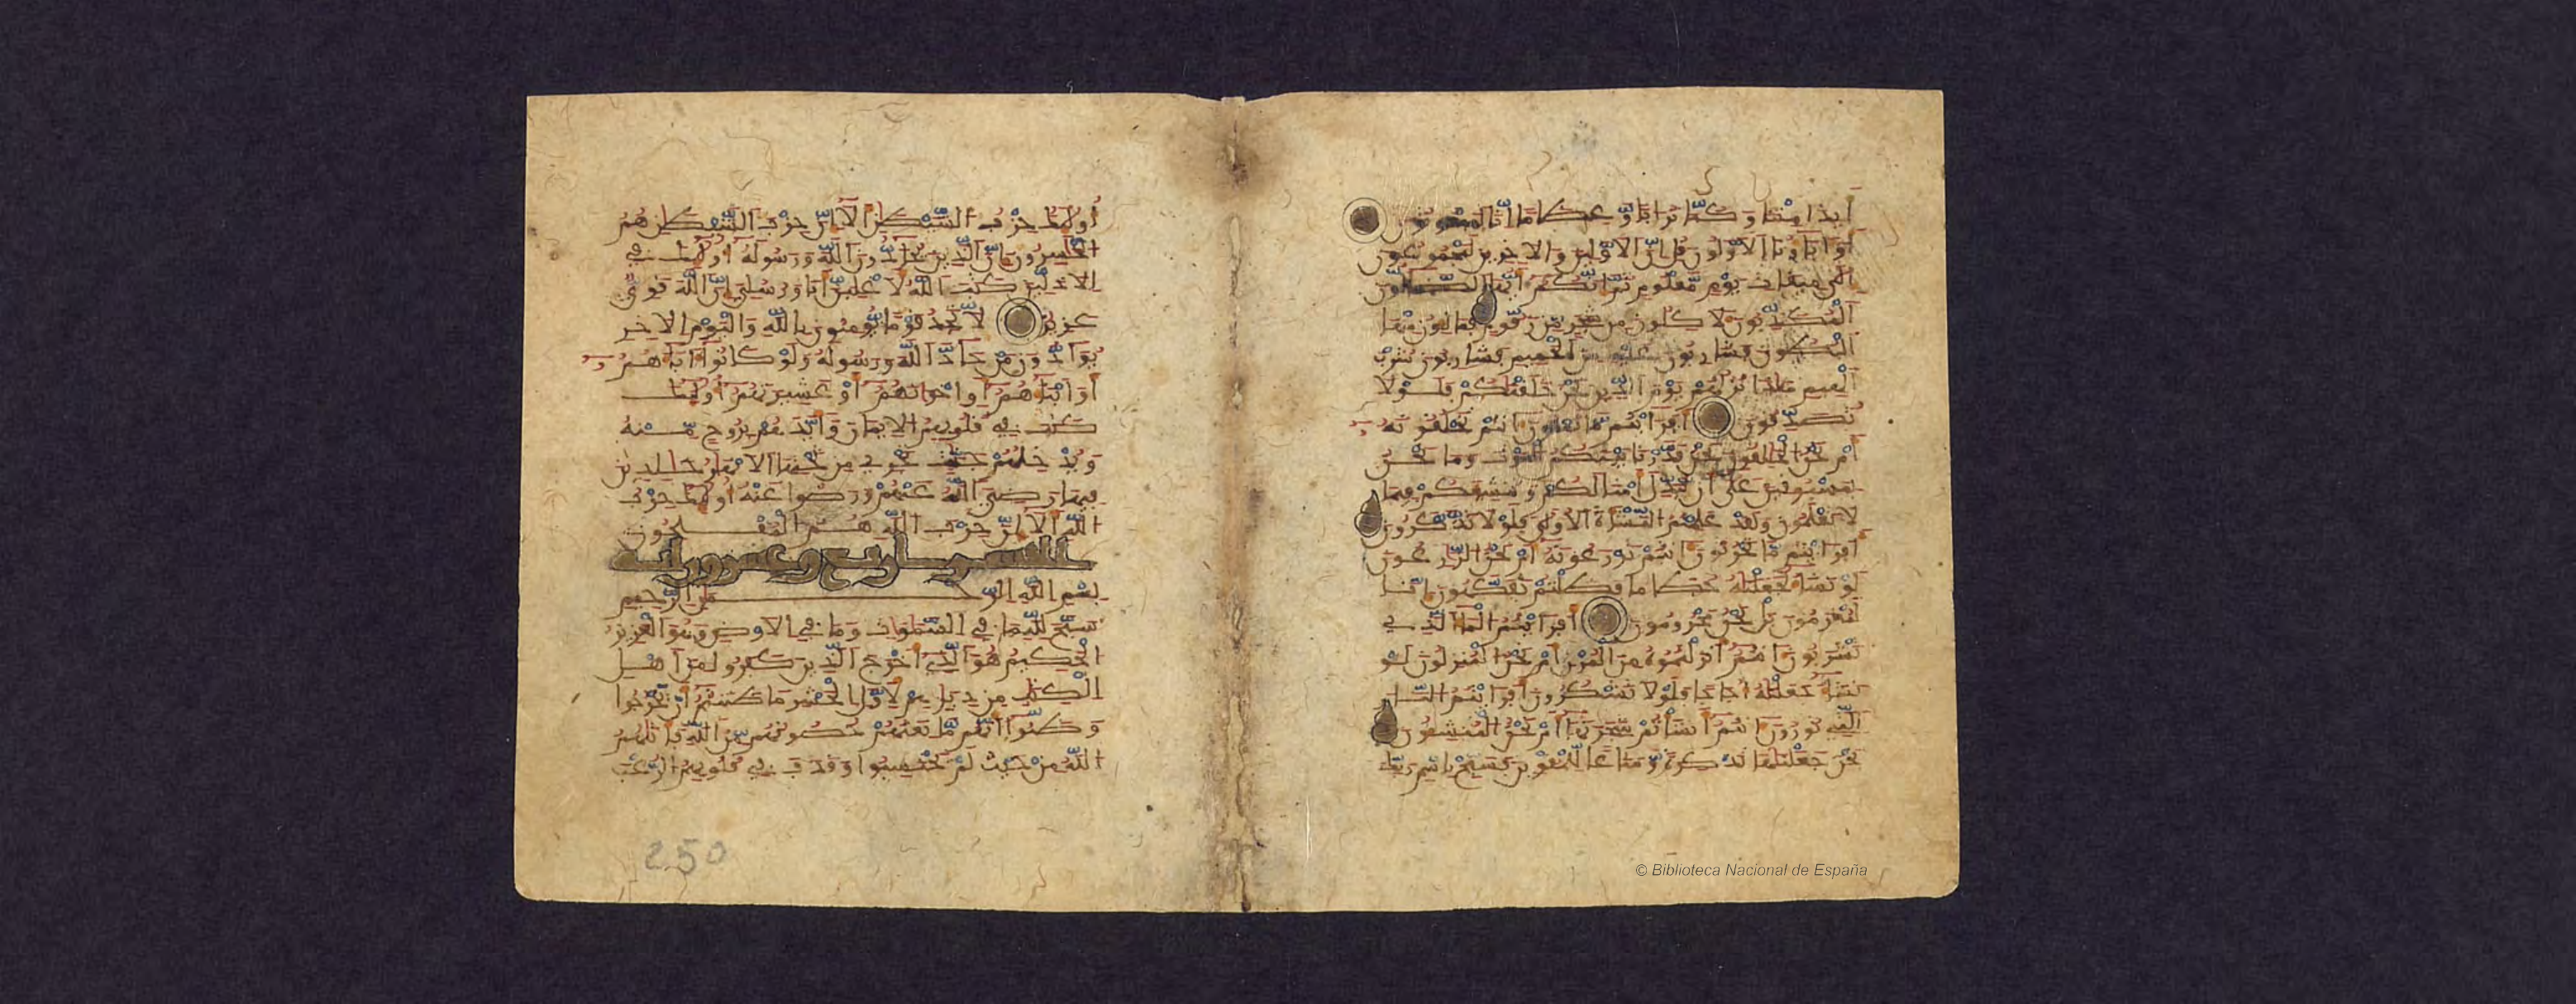 أيذا متنا وكنا ترابا وعظاما إنا لمبعوثون
أو اباؤنا الأولون قل إن الأولين والاخرين لمجموعون
إلى ميقات يوم معلوم ثم إنكم أيها الضالون
المكذبون لاكلون من شجر من زقوم فمالون منها
البطون فشاربون عليه من الحميم فشاربون شرب
الهيم هاذا نزلهم يوم الدين نحن خلقنكم فلولا
تصدقون أفرايتم ما تمنون آنتم تخلقونه
أم نحن الخلقون نحن قدرنا بينكم الموت وما نحن
بمسبوقين على أن نبدل أمثلكم وننشيكم فيما
لا تعلمون ولقد علمتم النشأة الأولى فلولا تذكرون
أفرايتم ما تحرثون آنتم تزرعونه أم نحن الزرعون
لو نشاء لجعلنه حطاما فظلتم تفكهون إنا
لمغرمون بل نحن محرومون أفرايتم الماء الذي
تشربون آنتم أنزلتموه من المزن أم نحن المنزلون لو
نشاء جعلنه أجاجا فلولا تشكرون أفرايتم النار
التي تورون آنتم أنشأتم شجرتها أم نحن المنشون
نحن جعلنها تذكرة ومتاعا للمقوين فسبح باسم ربك
أولئك حزب الشيطن ألا إن حزب الشيطن هم
الخسرون إن الذين يحادون الله ورسوله أولئك في
الاذلين كتب الله لأغلبن أنا ورسلي إن الله قوي
عزيز لا تجد قوما يومنون بالله واليوم الاخر
يوادون من حاد الله ورسوله ولو كانوا اباءهم
أو أبناءهم أو إخوانهم أو عشيرتهم أولئك
كتب في قلوبهم الايمان وأيدهم بروح منه
ويدخلهم جنت تجري من تحتها الانهر خلدين
فيها رضي الله عنهم ورضوا عنه أولئك حزب
الله ألا إن حزب الله هم المفلحون
أربع وعشرون اية
بسم الله الرحمن الرحيم
سبح لله ما في السموات وما في الارض وهو العزيز
الحكيم هو الذي أخرج الذين كفروا من أهل
الكتب من ديرهم لأول الحشر ما ظننتم أن يخرجوا
وظنوا أنهم ما نعتهم حصونهم من الله فأتاهم
الله من حيث لم يحتسبوا وقذف في قلوبهم الرعب
250
© Biblioteca Nacional de España